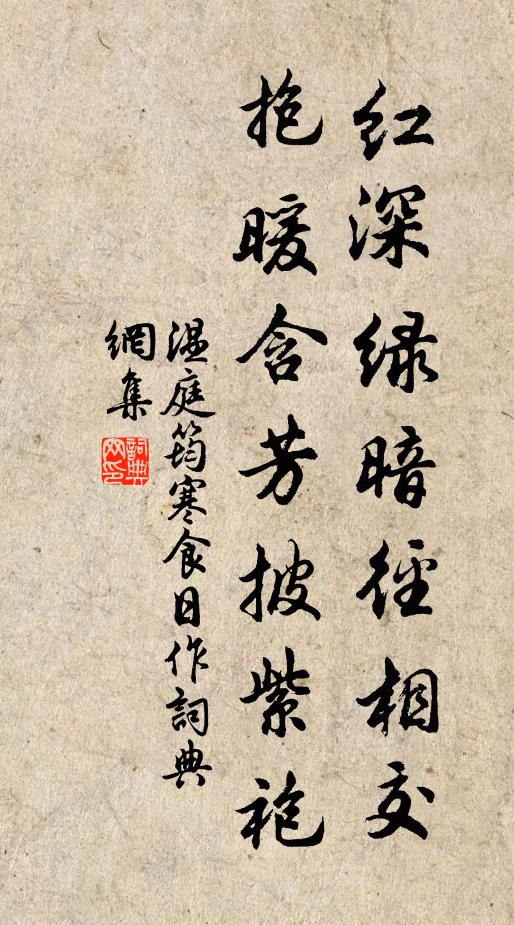 红深绿暗径相交
抱暖含芳披紫袍
温庭筠寒食日作詞典
網集
詞典
网印